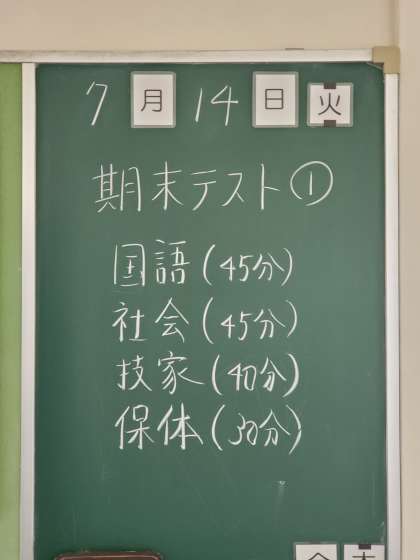 7月14日火
期末テスト①
国語(45分)
社会(45分)
技家(40分)
保体(30分)